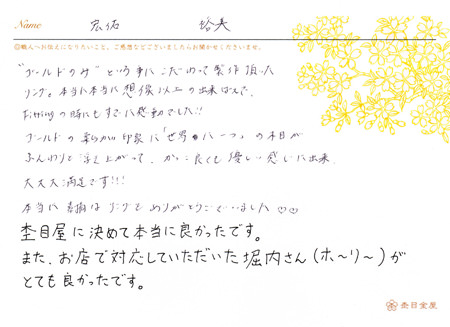 Name 宏佑
◎職人へお伝えになりたいこと、ご感想などございましたらお聞かせくださいませ。
"ゴールドのみ" という事にこだわって製作頂いた
リング。本当に本当に想像以上の出来ばえで、
の時にもすでに感動でした!!
ゴールドの柔らかい印象に「世界に一つ」の木目が
ふんわりと浮く上がって、かっこ良くも優しい感じに出来
大大大満足です!!!
本当に素敵なリングをありがとうございました♡♡
杢目屋に決めて本当に良かったです。
また、お店で対応していただいた堀内さん(ホ〜リ〜)が
とても良かったです。
杢目金屋